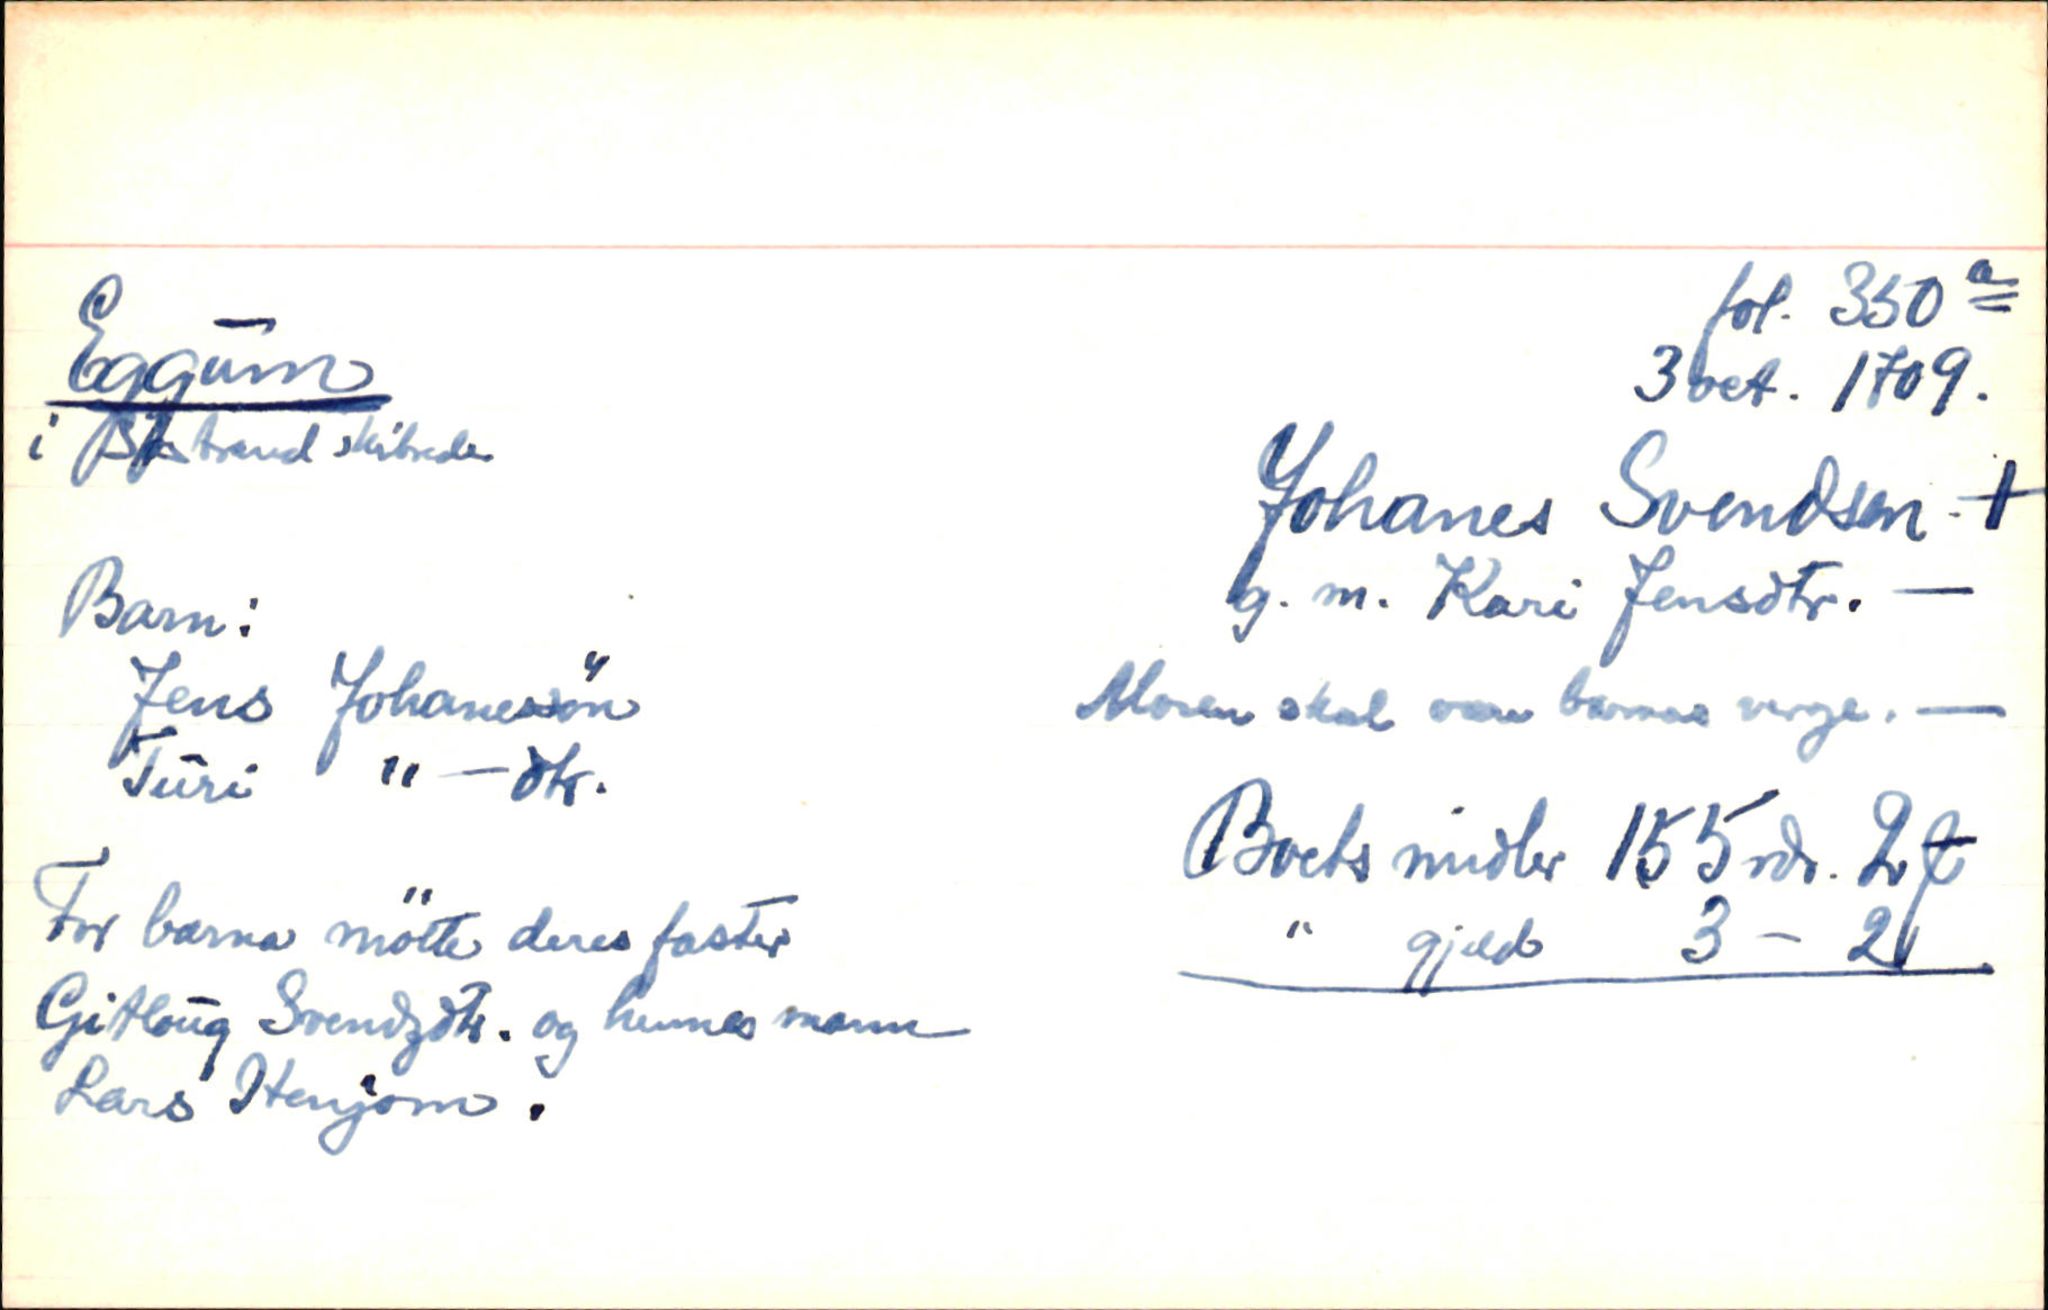 fol. 350 a
3 oct. 1709.
Eggum
i skibrede
Johanes Svendsen +
g. m. Kari Jensdtr. —
Moren skal være barnas verge. —
Barn:
Jens Johanessön
Turi " — dtr.
Boets midler 155 rdr. 2
" gjeld 3 - 2
For barna mötte deres faster
Gitloug Svendzdtr. og hennes mann
Lars Henjom.